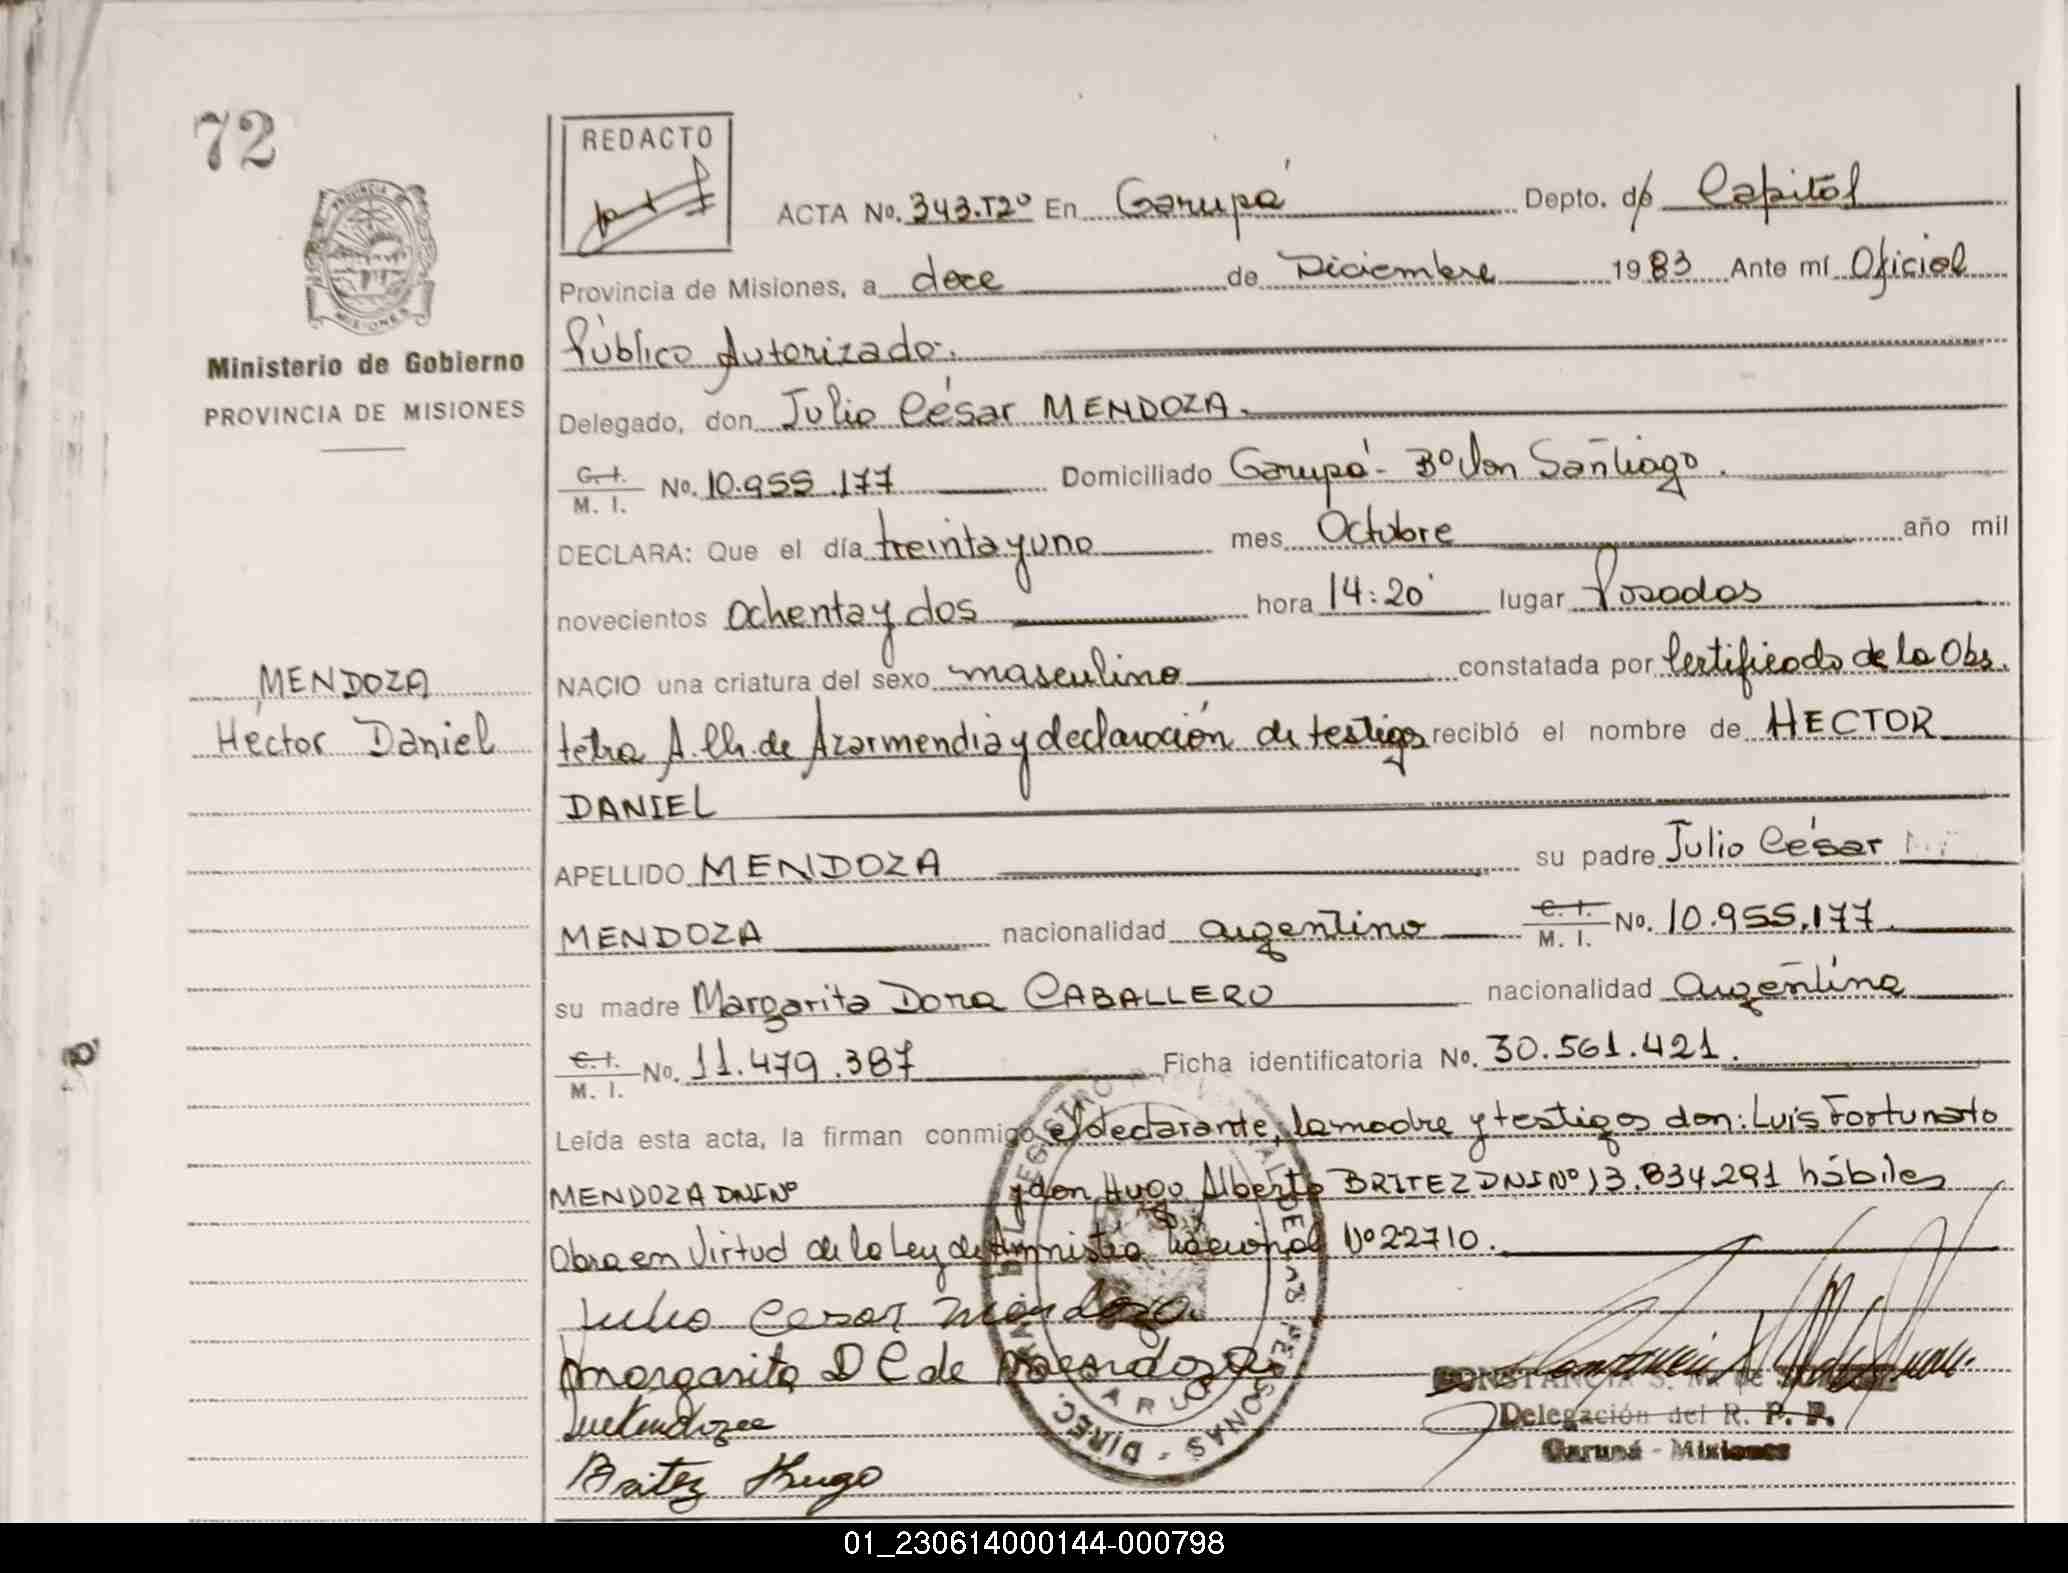 72
REDACTO
ACTA No. 343.T2º En Garupá Depto. de Capital
Provincia de Misiones, a doce de Diciembre 1983 Ante mí Oficial
Público Autorizado.
PROVINCIA MISIONES
Ministerio de Gobierno
PROVINCIA DE MISIONES
Delegado, don Julio César MENDOZA.
C. I. M. I. No. 10.955.177 Domiciliado Garupá - Bº Don Santiago.
DECLARA: Que el día treinta y uno mes Octubre año mil
novecientos ochenta y dos hora 14:20' lugar Posadas
MENDOZA
Héctor Daniel
NACIO una criatura del sexo masculino constatada por Certificado de la Obs.
tetra A. Ch. de Azarmendia y declaración de testigos recibió el nombre de HECTOR
DANIEL
APELLIDO MENDOZA su padre Julio César
MENDOZA nacionalidad argentino C. I. M. I. No. 10.955.177.
su madre Margarita Dora CABALLERO nacionalidad argentina
C. I. M. I. No. 11.479.387 Ficha identificatoria No. 30.561.421.
Leída esta acta, la firman conmigo el declarante, la madre y testigos don: Luis Fortunato
MENDOZA DNI Nº y don Hugo Alberto BRITEZ DNI Nº 13.834.291 hábiles
Obra en Virtud de la Ley de Amnistía Nacional Nº 22710.
Julio Cesar Mendoza
Margarita D C de Mendoza
Britez Hugo
CONSTANCIA S. M. de
Delegación del R. P. P.
Garupá - Misiones
01_230614000144-000798